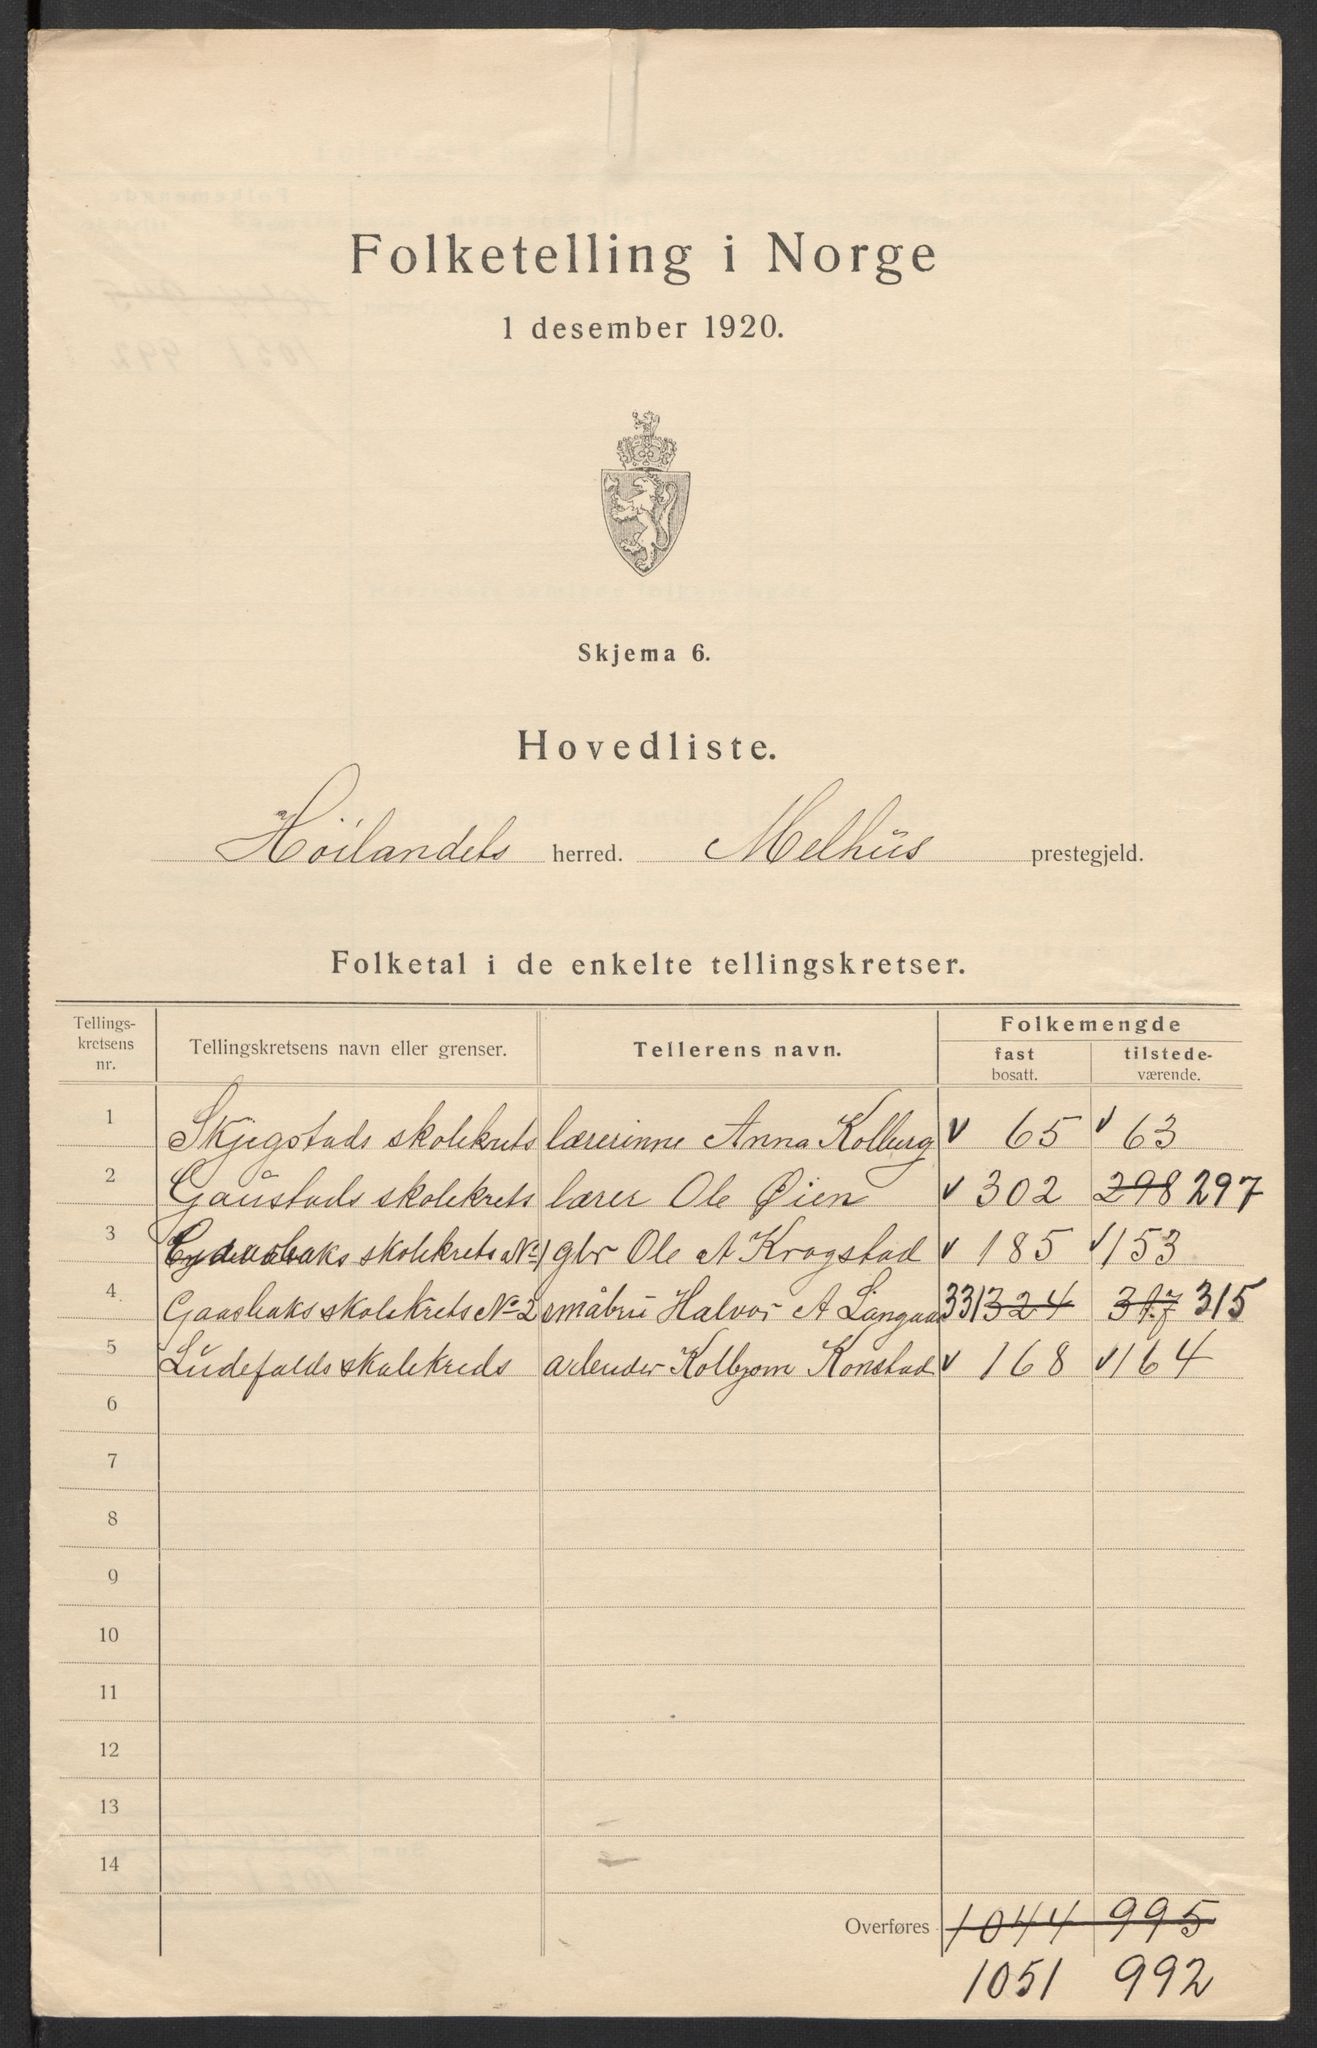 Folketelling i Norge
1 desember 1920.
Skjema 6.
Hovedliste.
Höilandets herred. Melhus prestegjeld.
Folketal i de enkelte tellingskretser.
Tellings-kretsens nr. Tellingskretsens navn eller grenser. Tellerens navn. Folkemengde
fast bosatt. tilstede-værende.
1 Skjegstads skolekrets lærerinne Anna Kolberg v 65 v 63
2 Gaustads skolekrets lærer Ole Øien v 302 298 297
3 skolekrets No 1 gbr Ole A Krogstad v 185 v 153
4 Gaasbaks skolekrets No 2 småbru Halvor A Langaas 331 324 317 315
5 Ludefalds skolekreds arbeider Kolbjørn Konstad v 168 v 164
6
7
8
9
10
11
12
13
14
Overføres 1044 995
1051 992